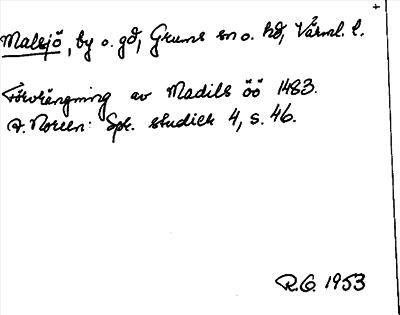 Malsjö, by o. gd, Grums sn o. hd, Värml. l.
Förvrängning av Madils öö 1483.
A. Noreen: Spr. studier 4, s. 46.
R.G. 1953